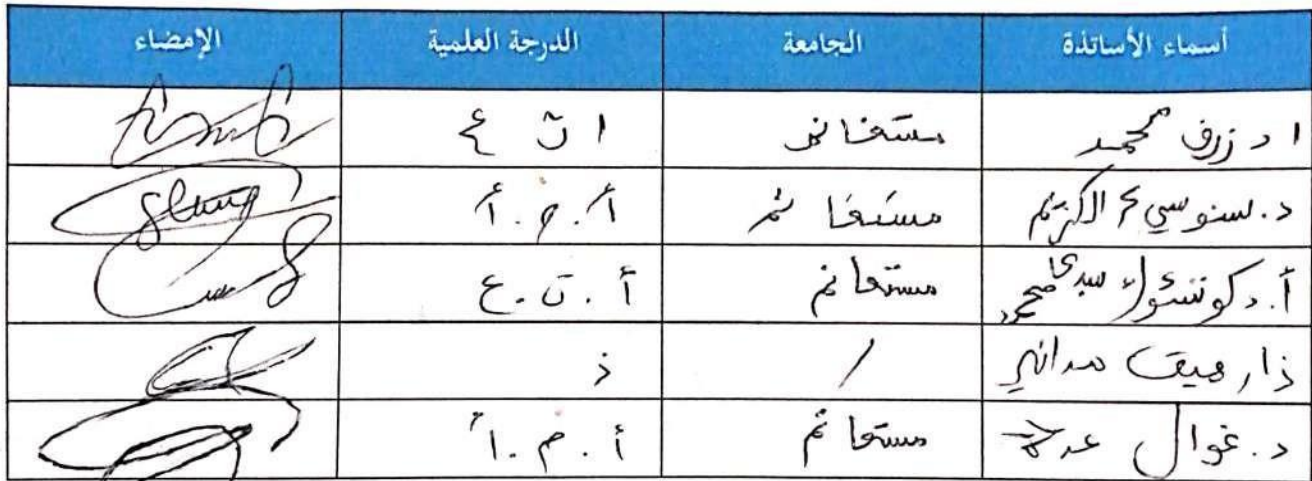 أسماء الأساتذة الجامعة الدرجة العلمية الإمضاء
ا د زرف محمد مستغانم ا ت ع
د. سنوسي ع الكريم مستغانم أ. م. أ
أ. د كونشوك سيدي محمد مستغانم أ. ت. ع
/ ذ
د. غوال عدة مستغانم أ. م. أ